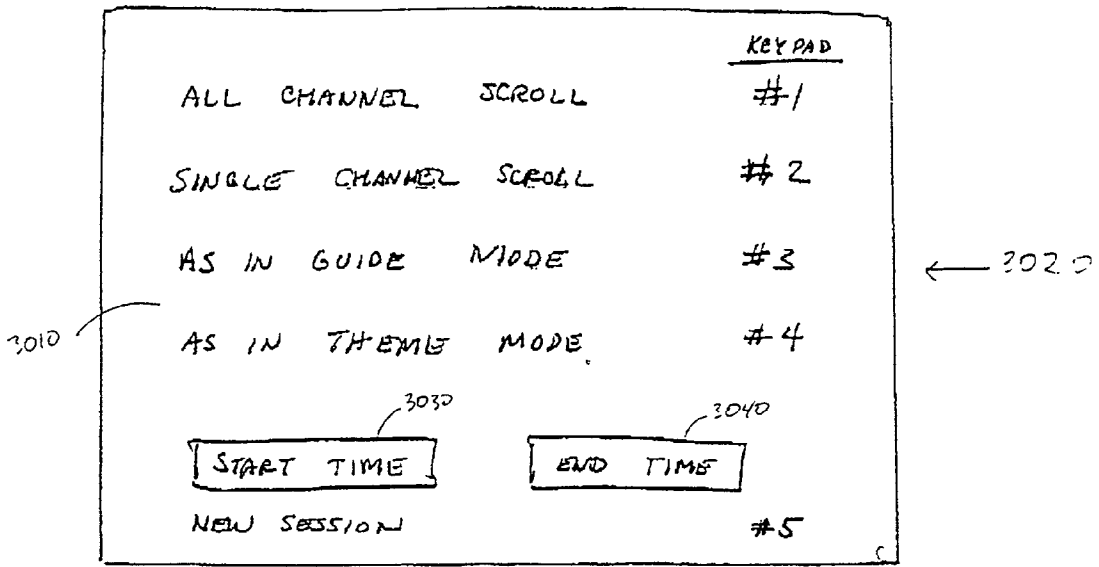 KEYPAD
ALL CHANNEL SCROLL #1
SINGLE CHANNEL SCROLL #2
AS IN GUIDE MODE #3
3020
AS IN THEME MODE #4
3010
3030
3040
START TIME END TIME
NEW SESSION #5